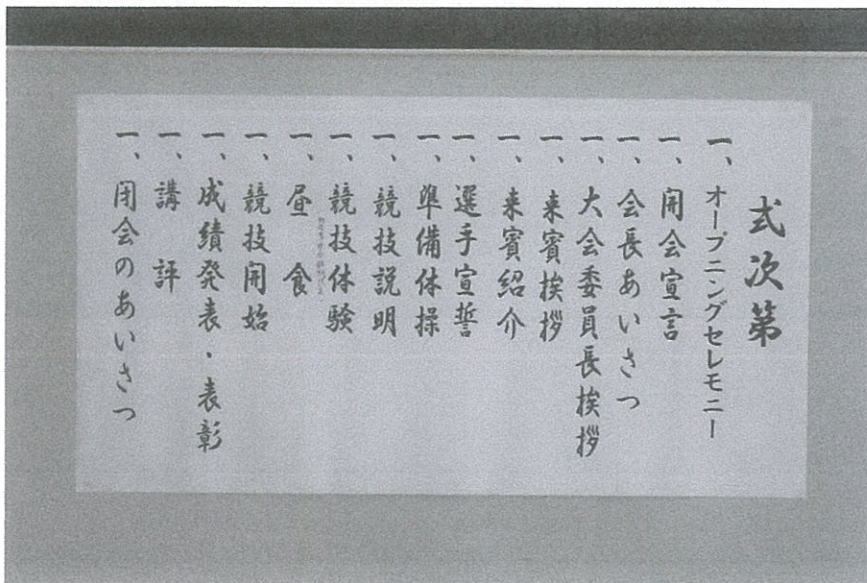 式次第
一、オープニングセレモニー
一、開会宣言
一、会長あいさつ
一、大会委員長挨拶
一、来賓挨拶
一、来賓紹介
一、選手宣誓
一、準備体操
一、競技説明
一、競技体験
一、昼 食
一、競技開始
一、成績発表・表彰
一、講 評
一、閉会のあいさつ